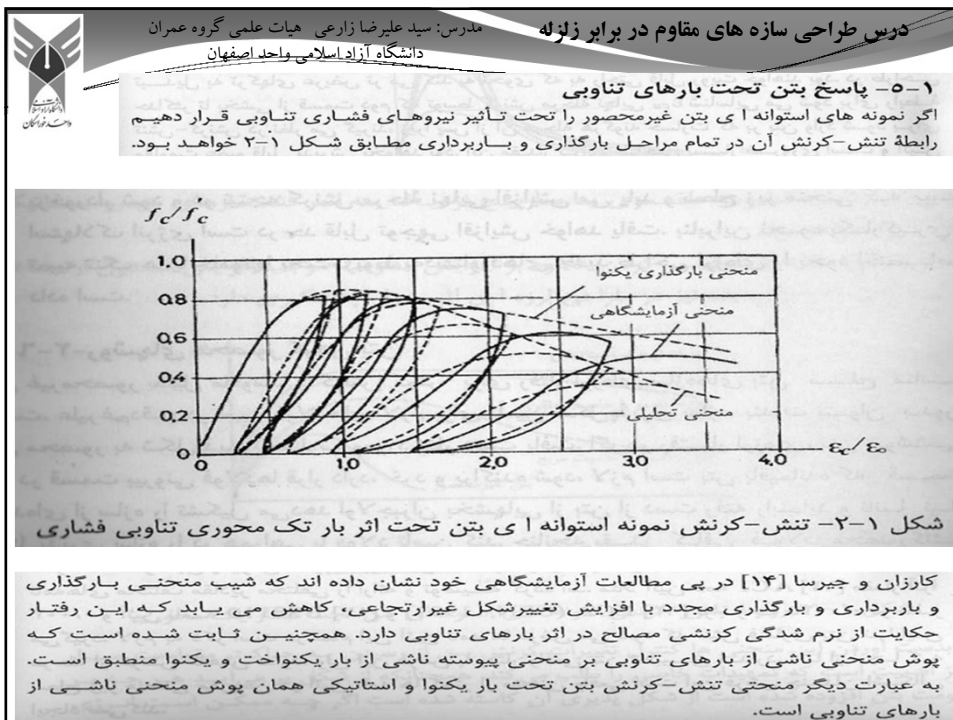 درس طراحی سازه های مقاوم در برابر زلزله
مدرس: سید علیرضا زارعی هیات علمی گروه عمران
دانشگاه آزاد اسلامی واحد اصفهان
۱-۵- پاسخ بتن تحت بارهای تناوبی
اگر نمونه های استوانه ا ی بتن غیرمحصور را تحت تأثیر نیروهای فشاری تناوبی قرار دهیم
رابطهٔ تنش-کرنش آن در تمام مراحل بارگذاری و بـاربرداری مطابق شکل ۱-۲ خواهـد بـود.
fc/f'c
1.0
0.8
0.6
0.4
0.2
0
0
1.0
2.0
3.0
4.0
εc/εo
منحنی بارگذاری یکنوا
منحنی آزمایشگاهی
منحنی تحلیلی
شکل ۱-۲- تنش-کرنش نمونه استوانه ا ی بتن تحت اثر بار تک محوری تناوبی فشاری
کارزان و جیرسا [۱۴] در پی مطالعات آزمایشگاهی خود نشان داده اند که شیب منحنـی بـارگذاری
و باربرداری و بارگذاری مجدد با افزایش تغییرشکل غیرارتجاعی، کاهش می یـابد کـه ایـن رفتـار
حکایت از نرم شدگی کرنشی مصالح در اثر بارهای تناوبی دارد. همچنیـن ثـابت شـده اسـت کـه
پوش منحنی ناشی از بارهای تناوبی بر منحنی پیوسته ناشی از بار یکنواخت و یکنوا منطبق اسـت.
به عبارت دیگر منحنی تنش-کرنش بتن تحت بار یکنوا و استاتیکی همان پوش منحنی ناشـی از
بارهای تناوبی است.